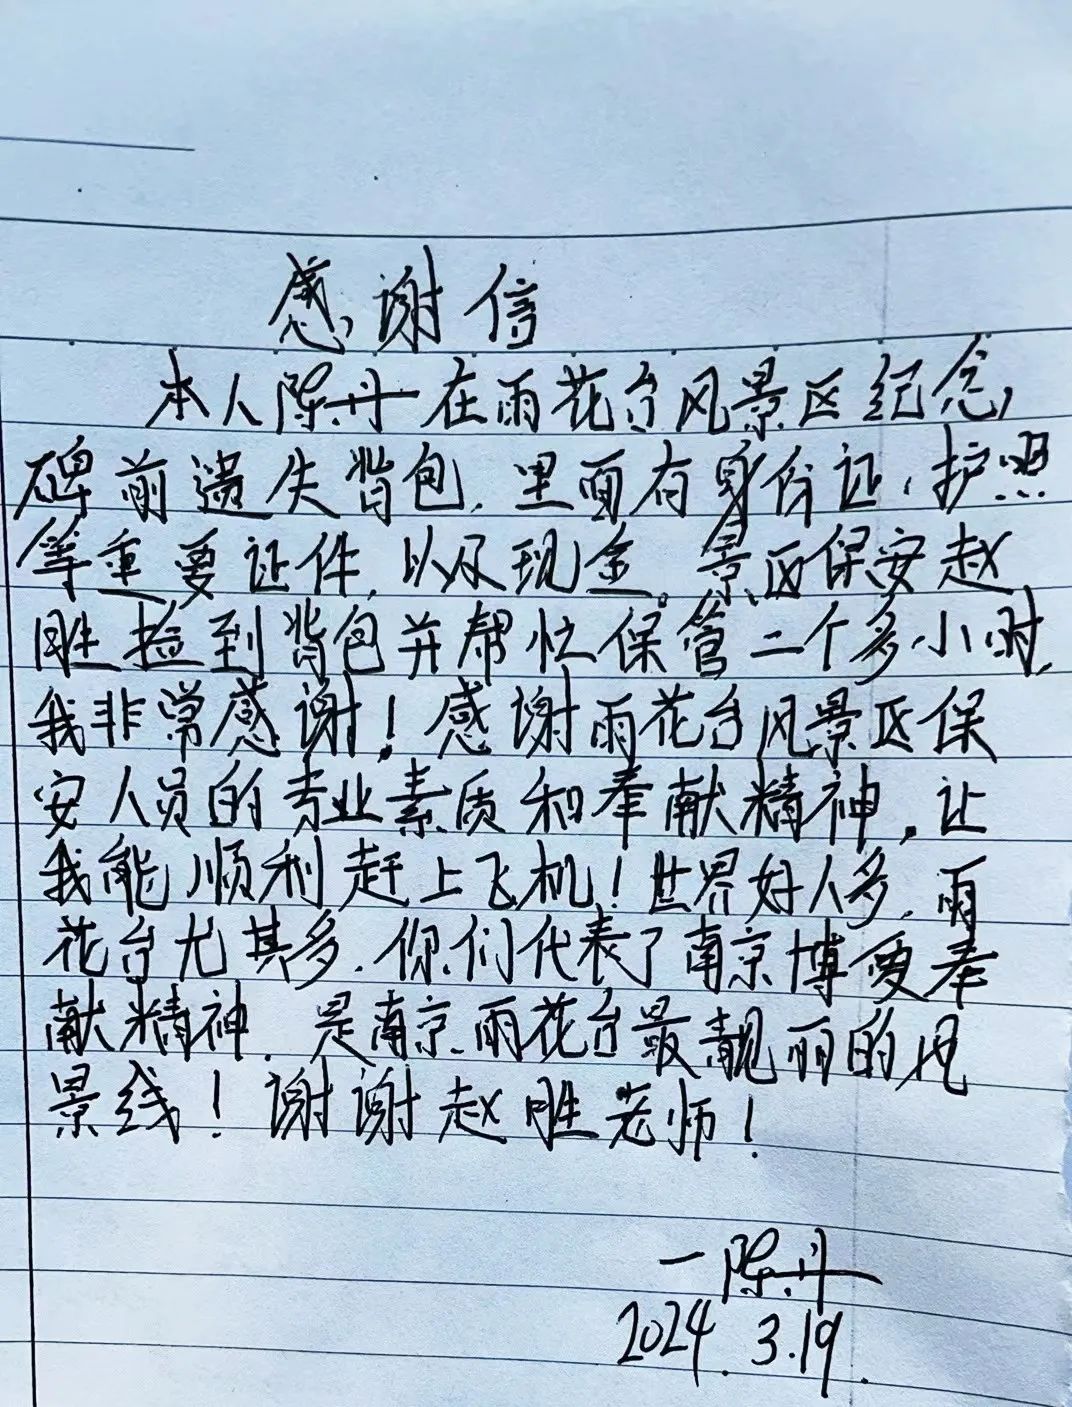 感谢信
本人陈丹在雨花台风景区纪念
碑前遗失背包,里面有身份证,护照
等重要证件,以及现金。景区保安赵
胜捡到背包并帮忙保管二个多小时,
我非常感谢!感谢雨花台风景区保
安人员的专业素质和奉献精神,让
我能顺利赶上飞机!世界好人多,雨
花台尤其多,你们代表了南京博爱奉
献精神,是南京雨花台最靓丽的风
景线!谢谢赵胜老师!
—陈丹
2024.3.19.